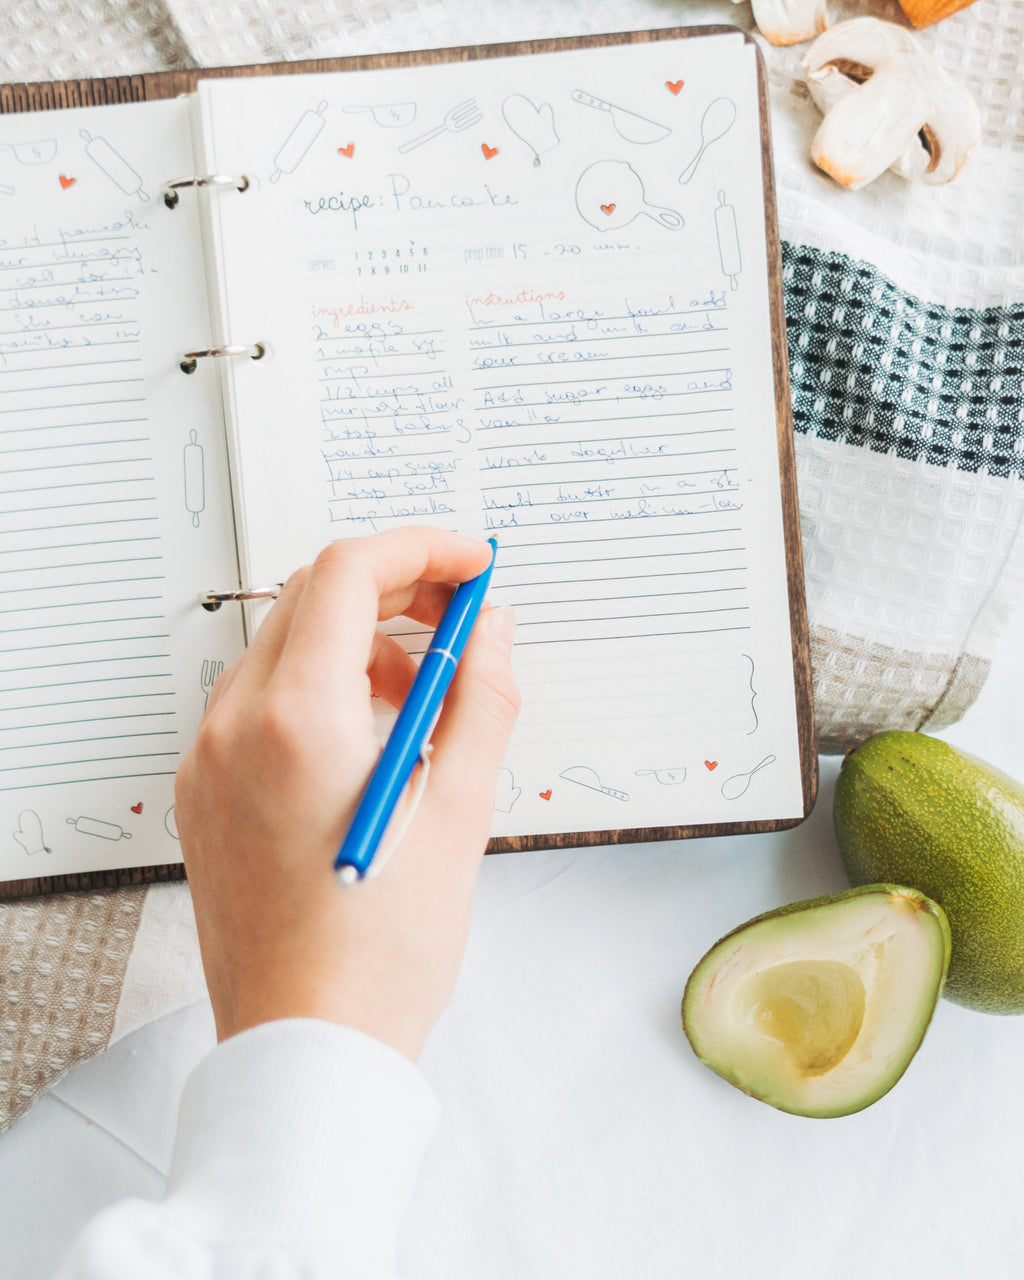 it pancake
hungry
call for it
daughter
she can
in
recipe: Pancake
serves 1 2 3 4 5 6
7 8 9 10 11
prep time 15 - 20 min.
ingredients
2 eggs
1 maple sy-
rup
1/2 cups all
purpose flour
2 tsp baking
powder
1/4 cup sugar
1 tsp salt
1 tsp vanilla
instructions
In a large bowl add
milk and milk and
sour cream
Add sugar, eggs and
vanilla
Wisk together
Melt butter in a sk-
llet over medium-low